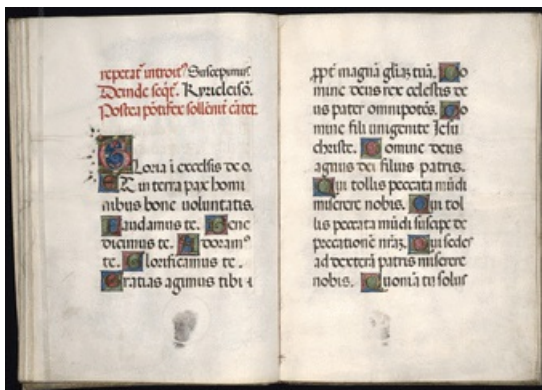 repetat᷑ introit᷒ Suscepimus.
Deinde seqt᷑. Kyrieleisō.
Postea põtifex sollēnit᷑ cātet.
Gloria ī excelsis deo.
Et in terra pax homi
nibus bone voluntatis.
Laudamus te. Bene
dicimus te. Adoram᷒
te. Glorificamus te.
Gratias agimus tibi
ꝓpt᷑ magnā gliaȝ tuā. Do
mine deus rex celestis de
us pater omnipotēs. Do
mine fili unigenite Jesu
christe. Domine deus
agnus dei filius patris.
Qui tollis peccata mūdi
miserere nobis. Qui tol
lis peccata mūdi suscipe de
precationē nr̄aȝ. Qui sedes
ad dexterā patris miserere
nobis. Quoniā tu solus